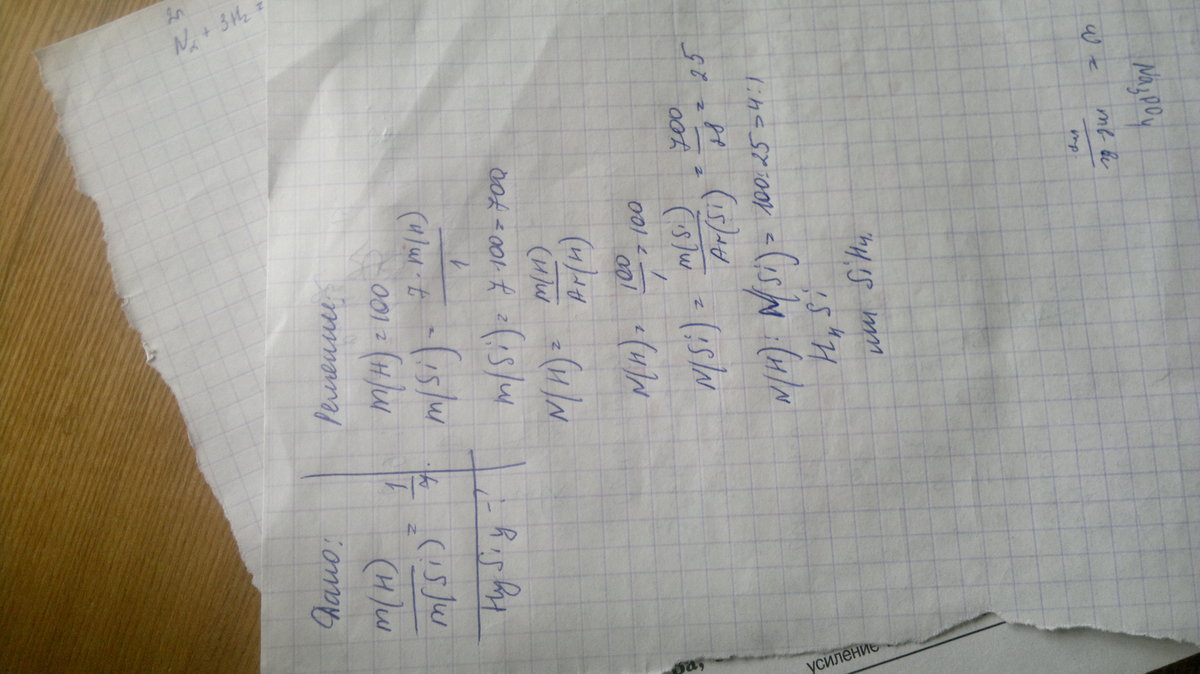 Дано:
m(H)
m(Si) = 1
7
HxSiy - ?
Решение:
m(H) = 100
m(Si) = 7·m(H)
1
m(Si) = 7·100 = 700
N(H) = m(H)
Ar(H)
N(H) = 100
1 = 100
N(Si) = m(Si)
Ar(Si) = 700
28 = 25
N(H) : N(Si) = 100:25 = 4:1
H4Si
или SiH4.
N2 + 3H2 =
Na3PO4
усиление